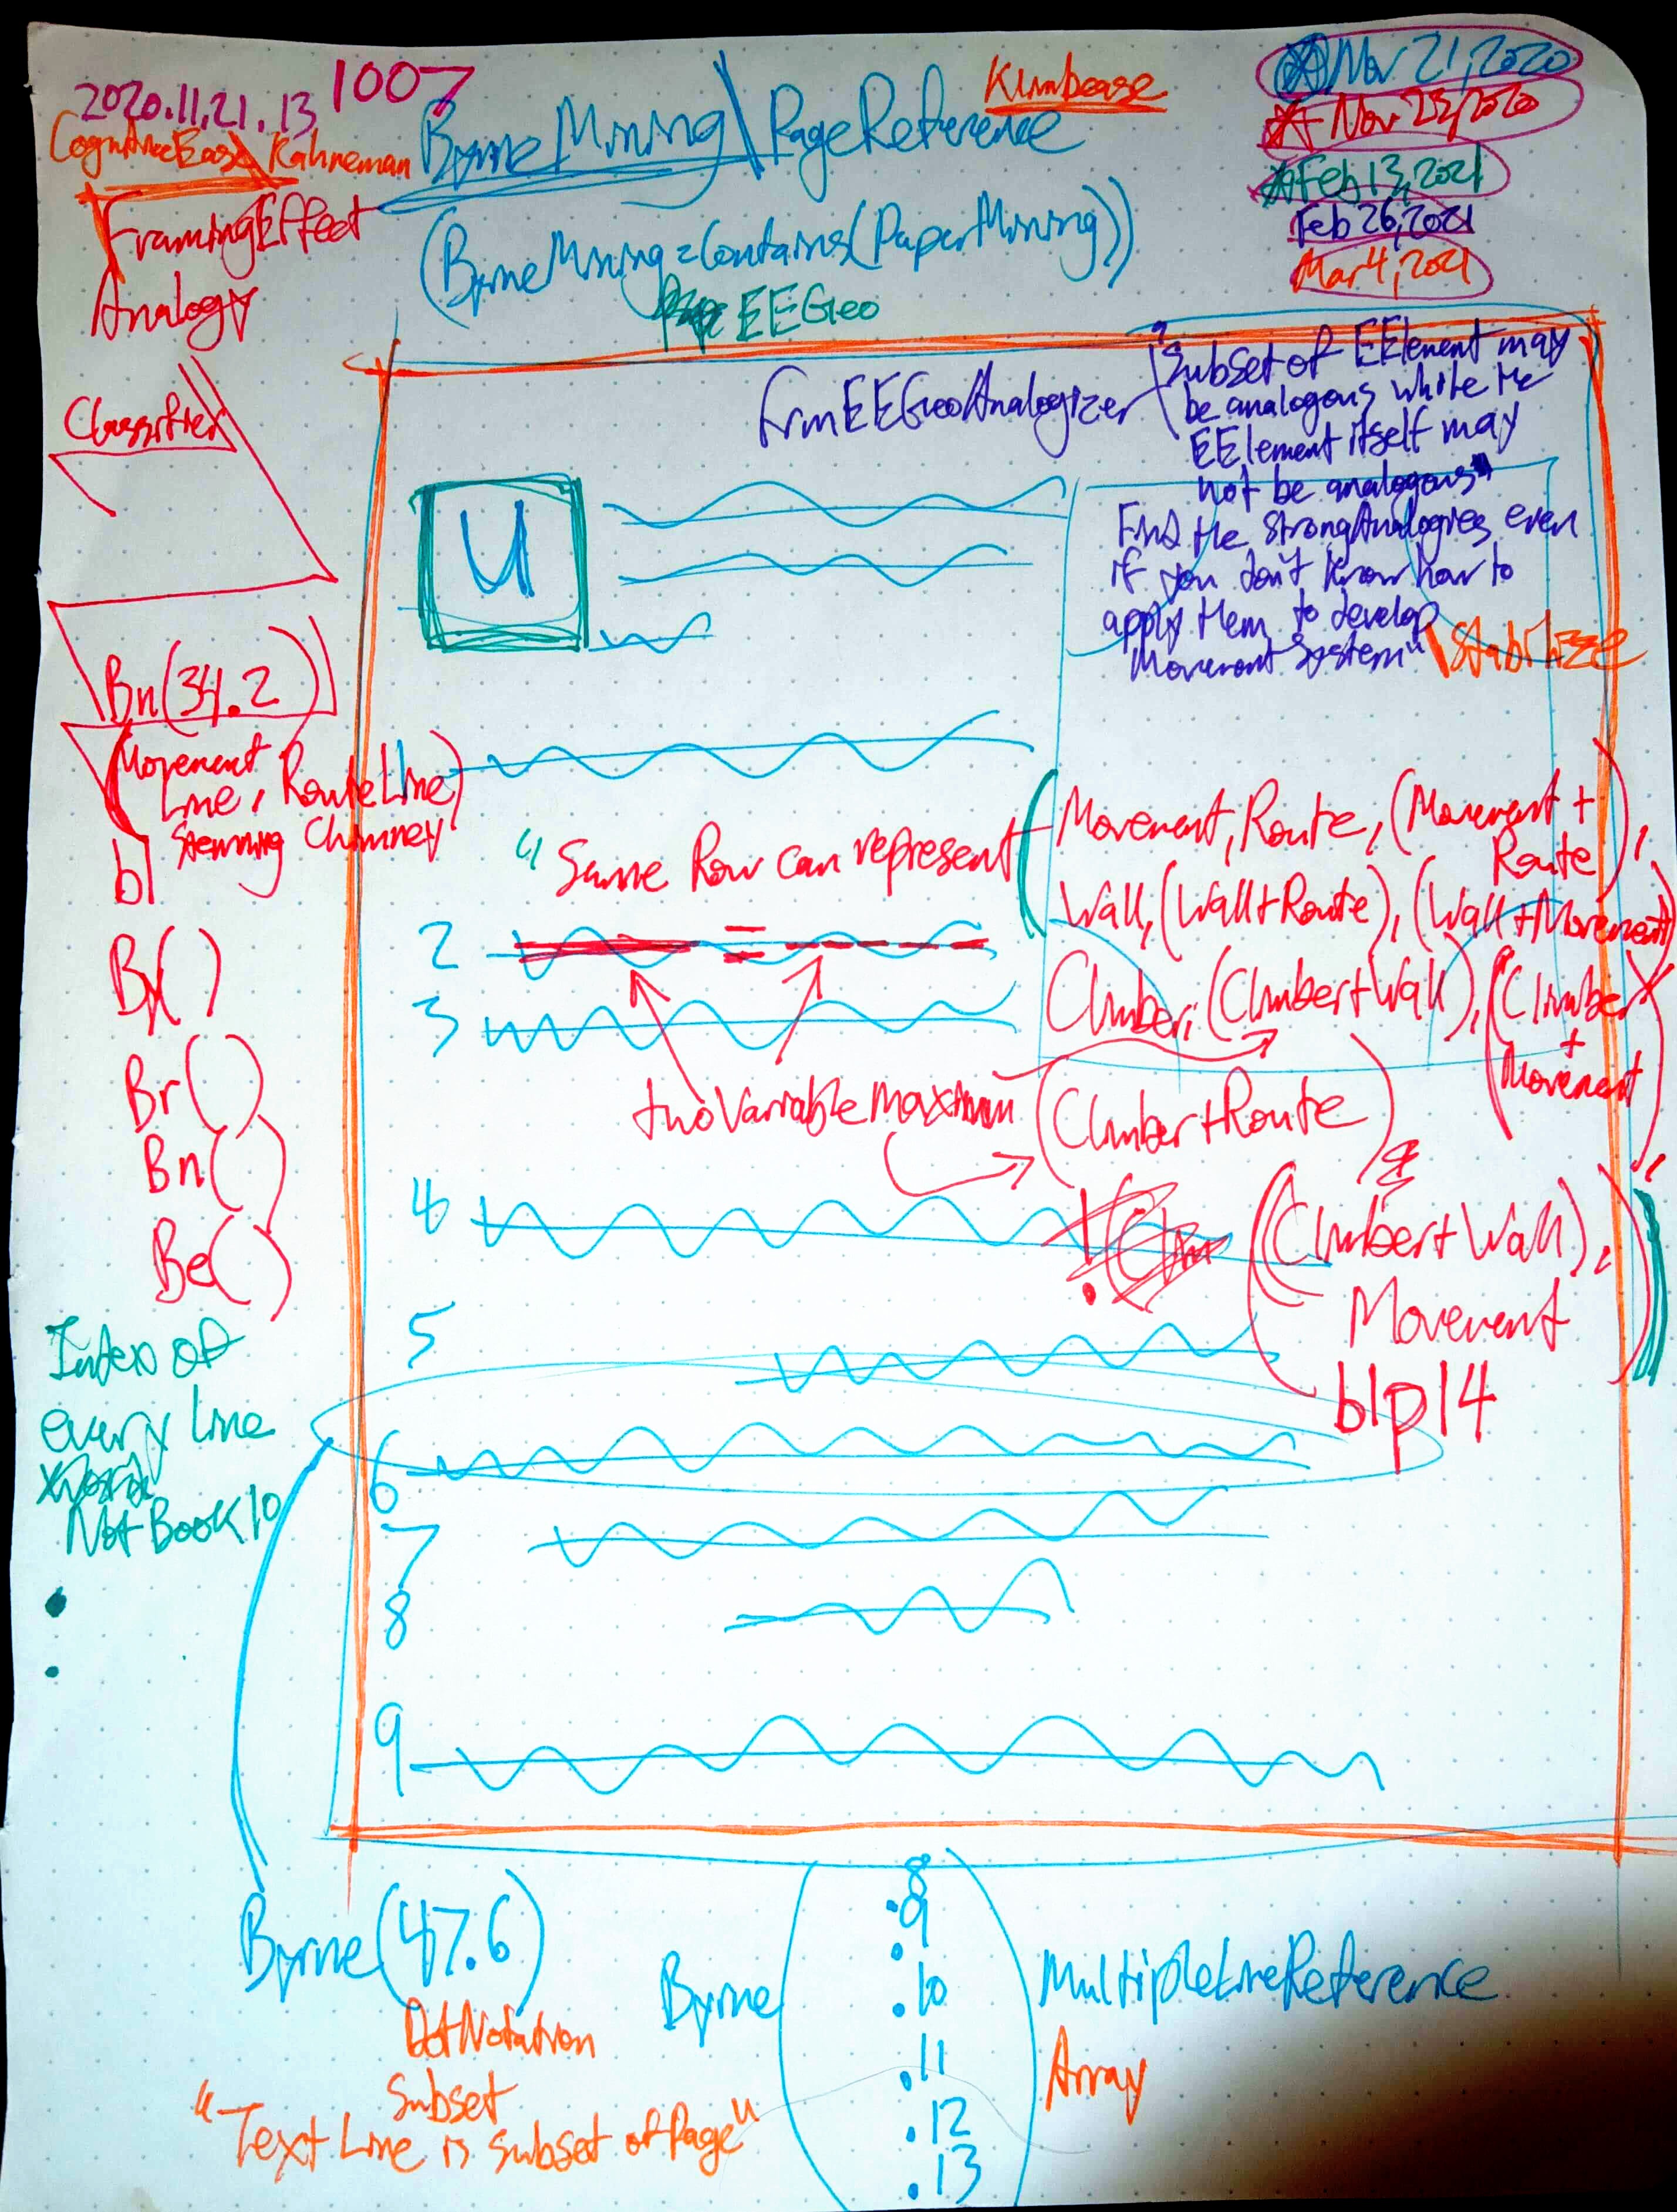 2020.11.21.13 1007
CognitiveEase\Kahneman
FramingEffect
Analogy
ByrneMining\PageReference
Klimbease
(ByrneMining=Contains(PaperMining))
EEGeo
Nov 21, 2020
Nov 23, 2020
Feb 13, 2021
Feb 26, 2021
Mar 4, 2021
Classifier
Bn(34.2)
(Movement
Line, RouteLine)
Stemming Chimney
b1
By()
Br()
Bn()
Be()
Index of
every line
Not Book 10
FrmEEGeoAnalogizer
"Subset of EElement may
be analogous while the
EElement itself may
not be analogous"
Find the StrongAnalogies even
if you don't know how to
apply them to develop
Movement System"
\Stabilize
U
1
"Same Row can represent
(Movement, Route, (Movement +
Route),
Wall, (Wall+Route), (Wall+Movement)
Climber, (Climber+Wall), (Climber
+
Movement)
2
=
3
two Variable maximum
(Climber+Route)
4
((Climber+Wall),
Movement
b1p14
5
6
7
8
9
Byrne(47.6)
DotNotation
Subset
"Text Line is subset of Page"
Byrne
8
.9
.10
.11
.12
.13
MultipleLineReference
Array